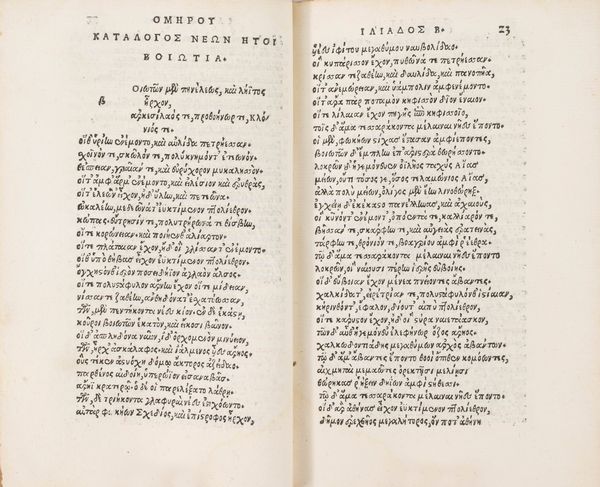 ΟΜΗΡΟΥ
ΚΑΤΑΛΟΓΟΣ ΝΕΩΝ ΗΤΟΙ
ΒΟΙΩΤΙΑ.
β Οιωτῶν μὲν πηνέλεως, καὶ λήϊτος
ἦρχον,
ἀρκεσίλαός τε, προθοήνωρ τε, κλο-
νίος τε.
οἵ θ' ὑρίην ἐνέμοντο, καὶ αὐλίδα πετρήεσσαν.
σχοῖνόν τε, σκῶλόν τε, πολύκνημόν τ' ἐτεωνόν.
θέσπειαν, γραῖάν τε, καὶ εὐρύχορον μυκαλησόν.
οἵ τ' ἀμφ' ἅρμ' ἐνέμοντο, καὶ εἰλέσιον καὶ ἐρυθράς,
οἵ τ' ἐλεῶν' εἶχον, ἠδ' ὕλην, καὶ πετεῶνα.
ὠκαλέην, μεδεῶνά τ' ἐυκτίμενον πτολίεθρον.
κώπας, εὔτρησίν τε, πολυτρήρωνά τε θίσβην,
οἵ τε κορώνειαν, καὶ ποιήενθ' ἁλίαρτον.
οἵ τε πλάταιαν ἔχον, ἠδ' οἳ γλίσαντ' ἐνέμοντο.
οἵ θ' ὑποθήβας εἶχον ἐυκτίμενον πτολίεθρον.
ὀγχηστόν θ' ἱερὸν ποσιδήϊον ἀγλαὸν ἄλσος.
οἵ τε πολυστάφυλον ἄρνην ἔχον οἵ τε μίδειαν,
νίσσαν τε ζαθέην, ἀνθηδόνα τ' ἐσχατόωσαν.
τῶν, μὲν πεντήκοντα νέες κίον· ἐν δὲ ἑκάστῃ,
κοῦροι βοιωτῶν ἑκατὸν, καὶ εἴκοσι βαῖνον.
οἳ δ' ἀσπληδόνα ναῖον, ἰδ' ὀρχομενὸν μινύειον,
τῶν, ἦρχ' ἀσκάλαφος· καὶ ἰάλμενος υἷες ἄρηος.
οὓς τέκεν ἀστυόχη δόμῳ ἄκτορος ἀζείδαο.
παρθένος αἰδοίη, ὑπερώϊον εἰσαναβᾶσα.
ἄρηϊ κρατερῷ· ὁ δέ οἱ παρελέξατο λάθρῃ.
τῶν, δὲ τριήκοντα γλαφυραὶ νέες ἐστιχόωντο.
αὐτὰρ φωκήων Σχεδίος, καὶ ἐπίστροφος ἦρχον,
ΙΛΙΑΔΟΣ Β. 23
υἱέες ἰφίτου μεγαθύμου ναυβολίδαο.
οἳ κυπάρισσον ἔχον, πυθῶνά τε πετρήεσσαν.
κρίσσαν τε ζαθέην, καὶ δαυλίδα, καὶ πανοπῆα,
οἵ τ' ἀνεμώρειαν, καὶ ὑάμπολιν ἀμφενέμοντο.
οἵ τ' ἄρα πὰρ ποταμὸν κηφισσὸν δῖον ἔναιον.
οἵ τε λίλαιαν ἔχον πηγῆς ἔπι κηφισσοῖο,
τοῖς δ' ἅμα τεσσαράκοντα μέλαιναι νῆες ἕποντο.
οἱ μὲν, φωκήων στίχας ἵστασαν ἀμφιέποντες,
βοιωτῶν δ' ἔμπλην ἐπ' ἀριστερὰ θωρήσσοντο.
λοκρῶν δ' ἡγεμόνευεν ὀϊλῆος ταχὺς Αἴας
μείων, οὔτι τόσος γε, ὅσος τελαμώνιος Αἴας,
ἀλλὰ πολὺ μείων, ὀλίγος μὲν ἔην λινοθώρηξ.
ἐγχείῃ δ' ἐκέκαστο πανέλληνας, καὶ ἀχαιούς,
οἳ κῦνόν τ' ἐνέμοντ', ὀπόεντά τε, καλλίαρόν τε,
βῆσσάν τε, σκάρφην τε, καὶ αὐγειὰς ἐρατεινάς,
τάρφην τε, θρόνιόν τε, βοαγρίου ἀμφὶ ῥέεθρα.
τῷ δ' ἅμα τεσσαράκοντα μέλαιναι νῆες ἕποντο
λοκρῶν, οἳ ναίουσι πέρην ἱερῆς εὐβοίης.
οἳ δ' εὔβοιαν ἔχον μένεα πνείοντες ἄβαντες.
χαλκίδα τ', εἰρέτριάν τε, πολυστάφυλόν θ' ἱστίαιαν,
κήρινθόν τ', ἔφαλον, δίου τ' αἰπὺ πτολίεθρον,
οἵ τε κάρυστον ἔχον, ἠδ' οἳ στύρα ναιετάασκον,
τῶν δ' αὖθ' ἡγεμόνευ' ἐλεφήνωρ ὄζος ἄρηος.
χαλκωδοντιάδης μεγαθύμων ἀρχὸς ἀβάντων.
τῷ δ' ἅμ' ἄβαντες ἕποντο θοοὶ ὄπιθεν κομόωντες,
αἰχμηταὶ μεμαῶτες ὀρεκτῇσι μελίῃσι
θώρηκας ῥήξειν δηΐων ἀμφὶ στήθεσσι.
τῷ δ' ἅμα τεσσαράκοντα μέλαιναι νῆες ἕποντο.
οἳ δ' ἄρ' ἀθήνας εἶχον ἐυκτίμενον πτολίεθρον,
δῆμον ἐρεχθῆος μεγαλήτορος, ὅν ποτ' ἀθήνη